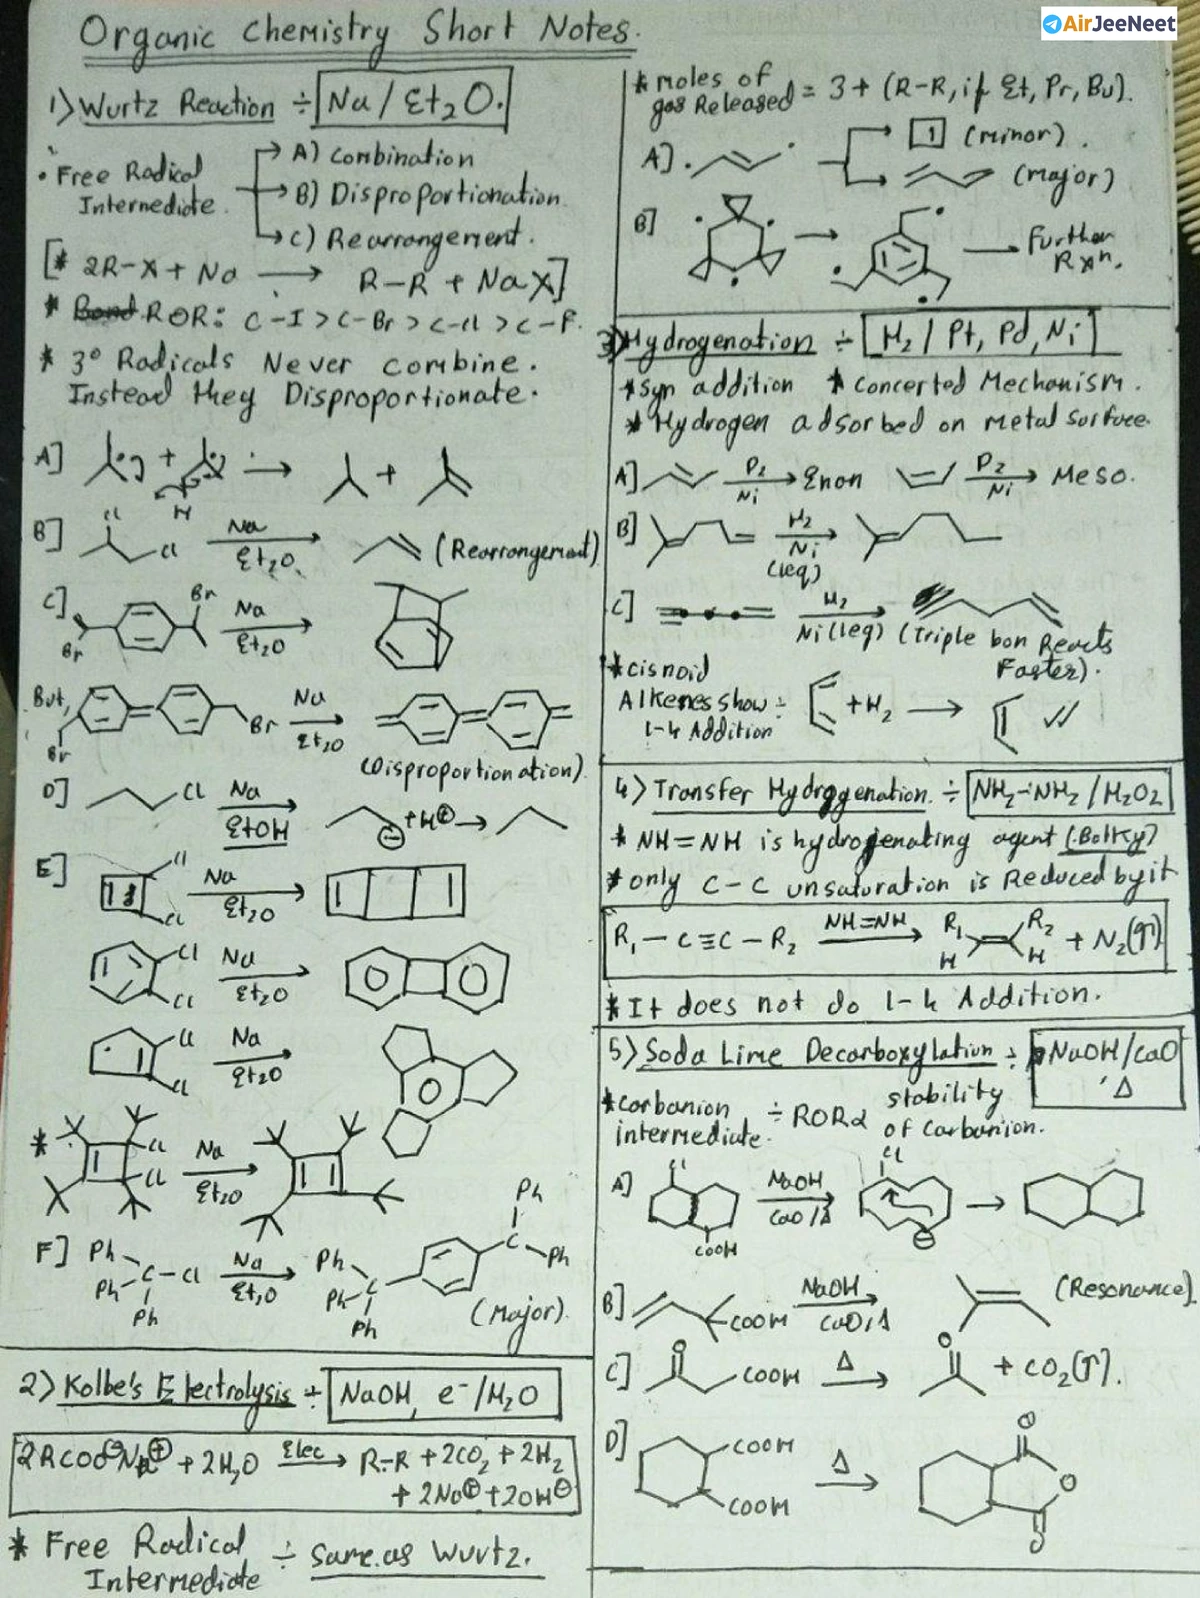 AirJeeNeet
Organic Chemistry Short Notes.
1) Wurtz Reaction ÷ Na / Et2O.
• Free Radical
Intermediate
A) Combination
B) Disproportionation
C) Rearrangement.
[* 2R-X + Na → R-R + NaX]
* ROR: C-I > C-Br > C-Cl > C-F.
* 3° Radicals Never combine.
Instead they Disproportionate.
A] + → +
H
B] Cl Cl Na Et2O (Rearrangement)
C] Br Br Na Et2O
But, Br Br Na Et2O
(Disproportionation)
D] Cl Na EtOH ⊖ + H⊕ →
E] Cl Cl Na Et2O
Cl Cl Na Et2O
Cl Cl Na Et2O
* Cl Cl Na Et2O
F] Ph Ph C-Cl Ph Na Et2O Ph Ph C Ph C Ph Ph
(Major)
2) Kolbe's Electrolysis ÷ NaOH, e⁻/H2O
2RCOO⊖Na⊕ + 2H2O Elec → R-R + 2CO2 + 2H2
+ 2Na⊕ + 2OH⊖
* Free Radical
Intermediate ÷ Same as Wurtz.
* moles of
gas Released = 3 + (R-R, if Et, Pr, Bu).
A]. (minor).
(major)
B] → → Further
Rxn.
3) Hydrogenation ÷ H2 / Pt, Pd, Ni
* syn addition * Concerted Mechanism.
* Hydrogen adsorbed on metal surface.
A] D2 Ni → Enan D2 Ni → Meso.
B] H2 Ni (1eq)
C] H2 Ni (1eq) (Triple bon Reacts
Faster).
* cisnoid
Alkenes show ÷ + H2 →
1-4 Addition
4) Transfer Hydrogenation ÷ NH2-NH2 / H2O2
* NH=NH is hydrogenating agent (Bulky)
* only C-C unsaturation is Reduced by it
R1 - C≡C - R2 NH=NH → R1 R2 H H + N2(↑)
* It does not do 1-4 Addition.
5) Soda Lime Decarboxylation ÷ NaOH/CaO
, Δ
* carbanion
intermediate ÷ ROR α stability
of carbanion.
A] Cl COOH NaOH CaO/Δ → Cl ⊖ →
B] COOH NaOH CaO, Δ (Resonance)
C] O COOH Δ → O + CO2(↑).
D] COOH COOH Δ → O O O